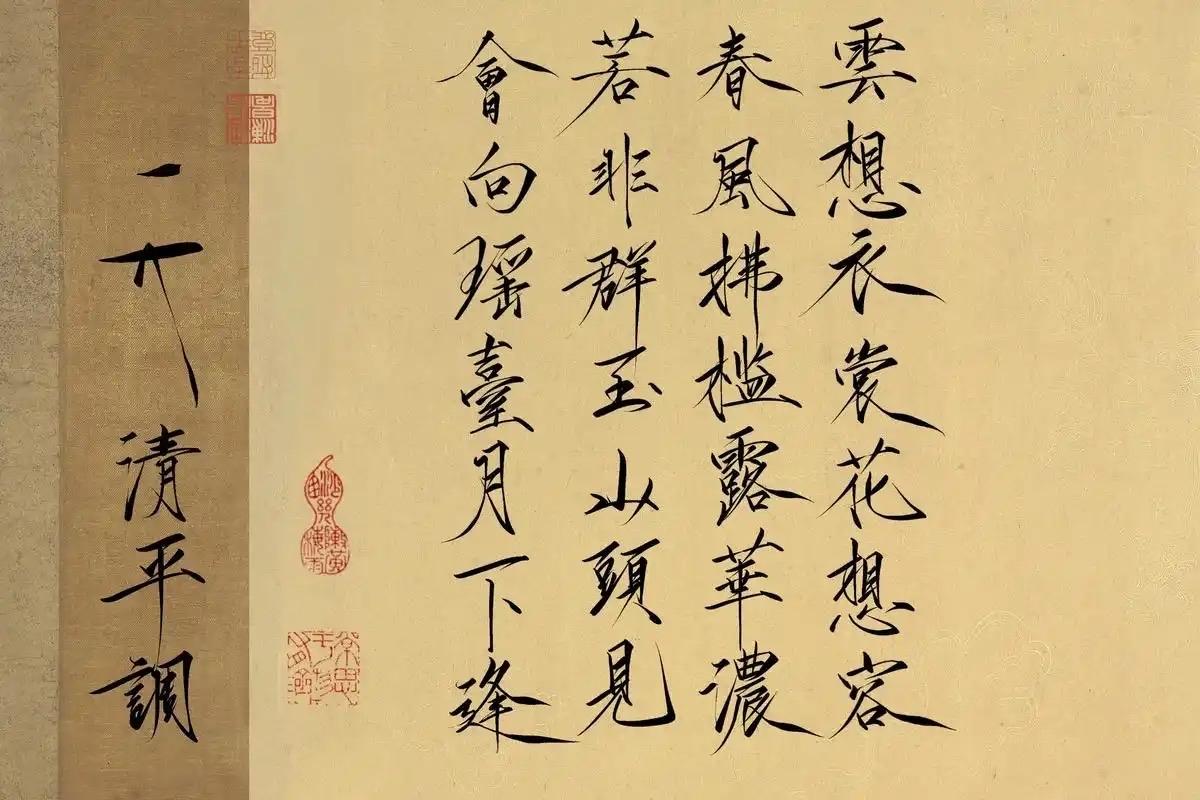 雲想衣裳花想容
春風拂檻露華濃
若非群玉山頭見
會向瑶臺月下逢
清平調